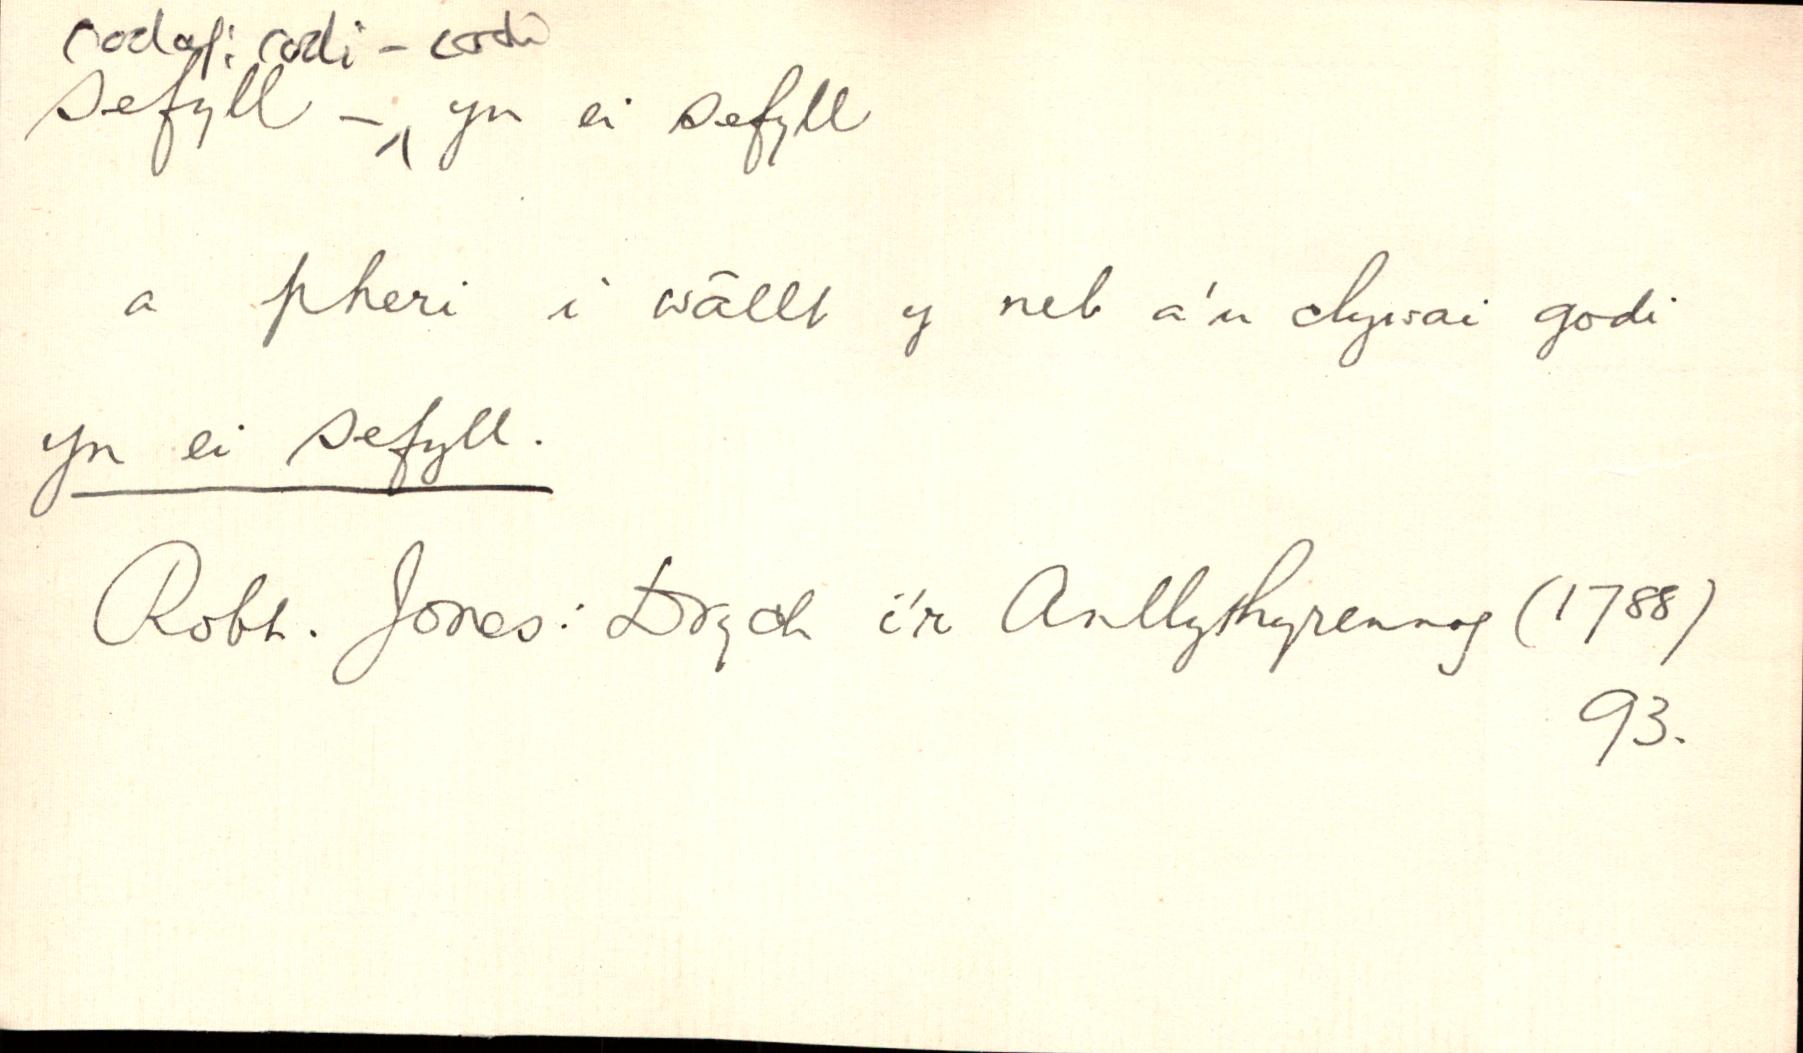 codaf: codi – codi
sefyll – ʌ yn ei sefyll
a pheri i wāllt y neb a'u clywai godi
yn ei sefyll.
Robt. Jones: Drych i'r Anllythyrennog (1788)
93.